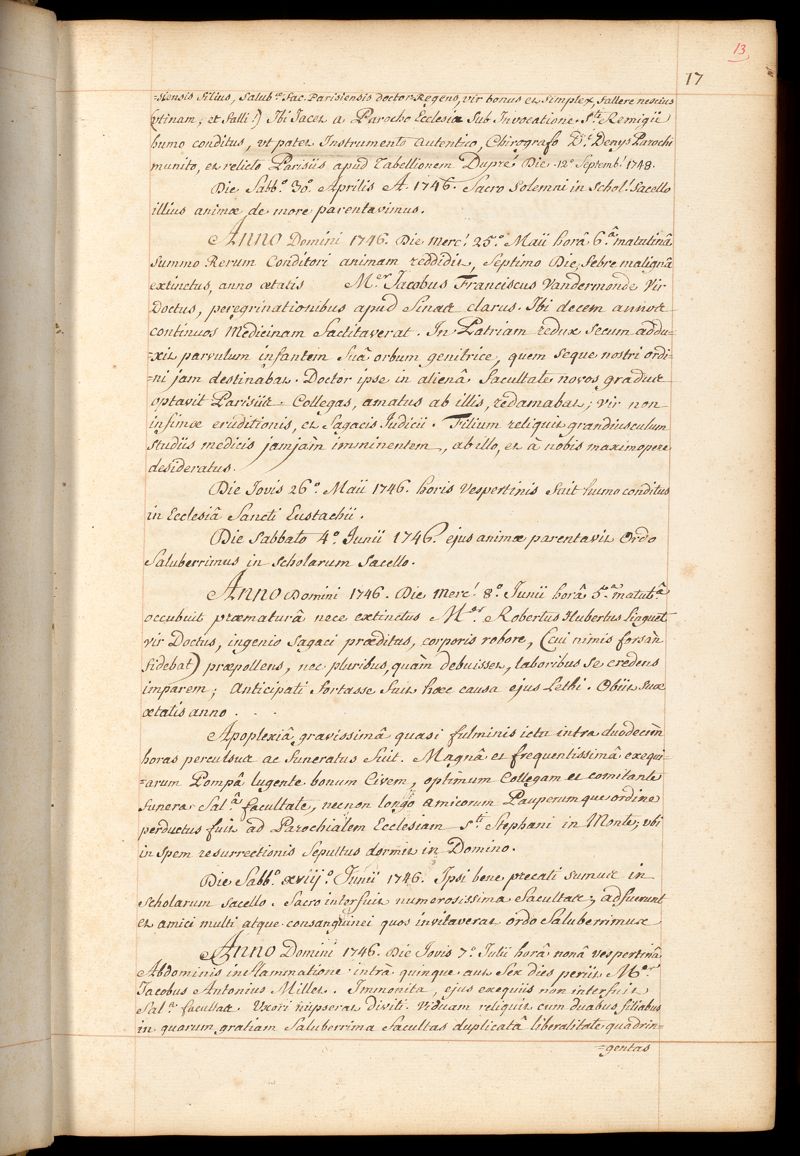 13
17
=stensis Filius, Salub.æ Fac. Parisiensis Doctor Regens, vir bonus et simplex, fallere nescius
(utinam, et falli!) Ibi Jacet a Parocho Ecclesiæ Sub Invocatione S.ti Remigii
humo conditus, ut patet Instrumento autentico, Chirografo D.i Denys Parochi
munito, et relicto Parisiis apud Tabellionem Dupré Die 12.a Septemb.s 1748.
Die Sabb.o 30.a Aprilis A. 1746. Sacro Solemni in Schol.m Sacello
illius animæ de more parentavimus.
Anno Domini 1746. Die Merc.i 25.o Maii horâ 6.â matutinâ
Summo Rerum Conditori animam reddidit, Septimo Die, febre malignâ
extinctus, anno ætatis M.er Jacobus Franciscus Vandermonde Vir
Doctus, peregrinationibus apud Sinas clarus. Ibi decem annos
continuos Medicinam factitaverat. In Patriam redux secum addu=
=xit parvulum infantem suâ orbum genitrice, quem seque nostri ordi=
=ni jam destinabat. Doctor ipse in alienâ facultate novos gradus
optavit Parisiis. Collegas, amatus ab illis, redamabat; vir non
infimæ eruditionis, et Sagacis Judicii. Filium reliquit grandiusculum
studiis medicis jamjàm imminentem, ab illo, et à nobis maximopere
desideratus.
Die Jovis 26.o Maii 1746. horis Vespertinis fuit humo conditus
in Ecclesiâ Sancti Eustachii.
Die Sabbato 4.o Junii 1746. ejus animæ parentavit Ordo
Saluberrimus in Scholarum Sacello.
Anno Domini 1746. Die Merc.i 8.o Junii horâ 5.a matut.â
occubuit præmaturâ nece extinctus M.er Robertus Hubertus Linguet
vir Doctus, ingenio sagaci præditus, corporis robore, (cui nimis forsàn
fidebat) præpollens, nec pluribus, quàm debuisset, laboribus se credens
imparem; Anticipati fortasse fuit hæc causa ejus Lethi. Obiit suæ
ætatis anno . . .
Apoplexiâ gravissimâ quasi fulminis ictu intra duodecim
horas perculsus ac funeratus fuit. Magnâ et frequentissimâ exequi=
=arum Pompâ lugente bonum Civem, optimum Collegam et comitante
funera Sal.â facultate, necnon longo amicorum Pauperumque ordine
perductus fuit ad Parochialem Ecclesiam S.ti Stephani in Monte, ubi
in spem resurrectionis Sepultus dormit in Domino.
Die Sabb.o xviij.o Junii 1746. Ipsi bene precati sumus in
Scholarum Sacello. Sacro interfuit numerosissima facultas; adfuerunt
et amici multi atque consanguinei quos invitaverat ordo Saluberrimus
Anno Domini 1746. Die Jovis 7.o Julii horâ nonâ vespertinâ
Abdominis inflammatione intrà quinque aut Sex dies periit M.er
Jacobus Antonius Millet. Immonita, ejus exequiis non interfuit
Sal.a facultas. Uxori nupserat diviti. Viduam reliquit cum duabus filiabus
in quarum gratiam Saluberrima facultas duplicatâ liberalitate quadrin=
=gentas